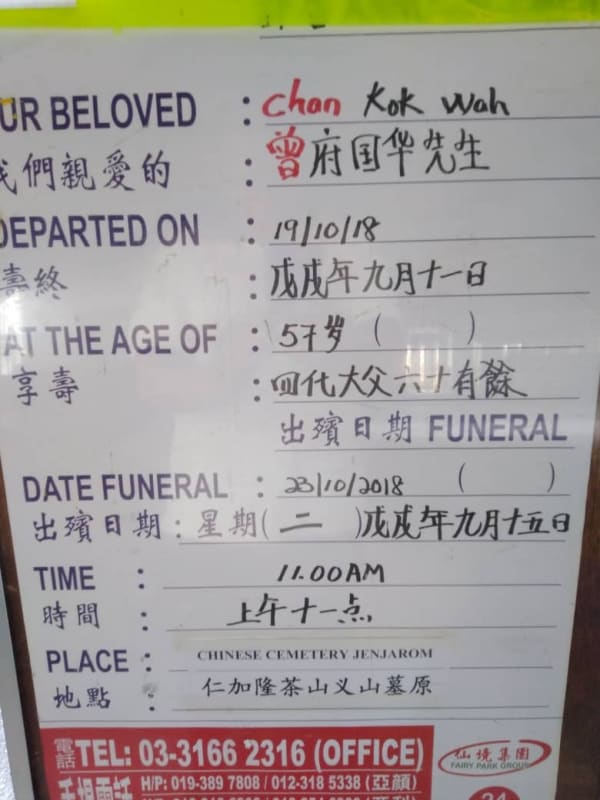 UR BELOVED : Chan Kok Wah
我們親愛的 : 曾府国华先生
DEPARTED ON : 19/10/18
壽終 : 戊戌年九月十一日
AT THE AGE OF : 57岁 ( )
享壽 : 四代大父六十有餘
出殯日期 FUNERAL
DATE FUNERAL : 23/10/2018 ( )
出殯日期 : 星期( 二 )戊戌年九月十五日
TIME : 11.00AM
時間 : 上午十一点
PLACE : CHINESE CEMETERY JENJAROM
地點 : 仁加隆茶山义山墓原
電話 TEL: 03-3166 2316 (OFFICE)
手提電話 H/P: 019-389 7808 / 012-318 5338 (亞顏)
仙境集團
FAIRY PARK GROUP